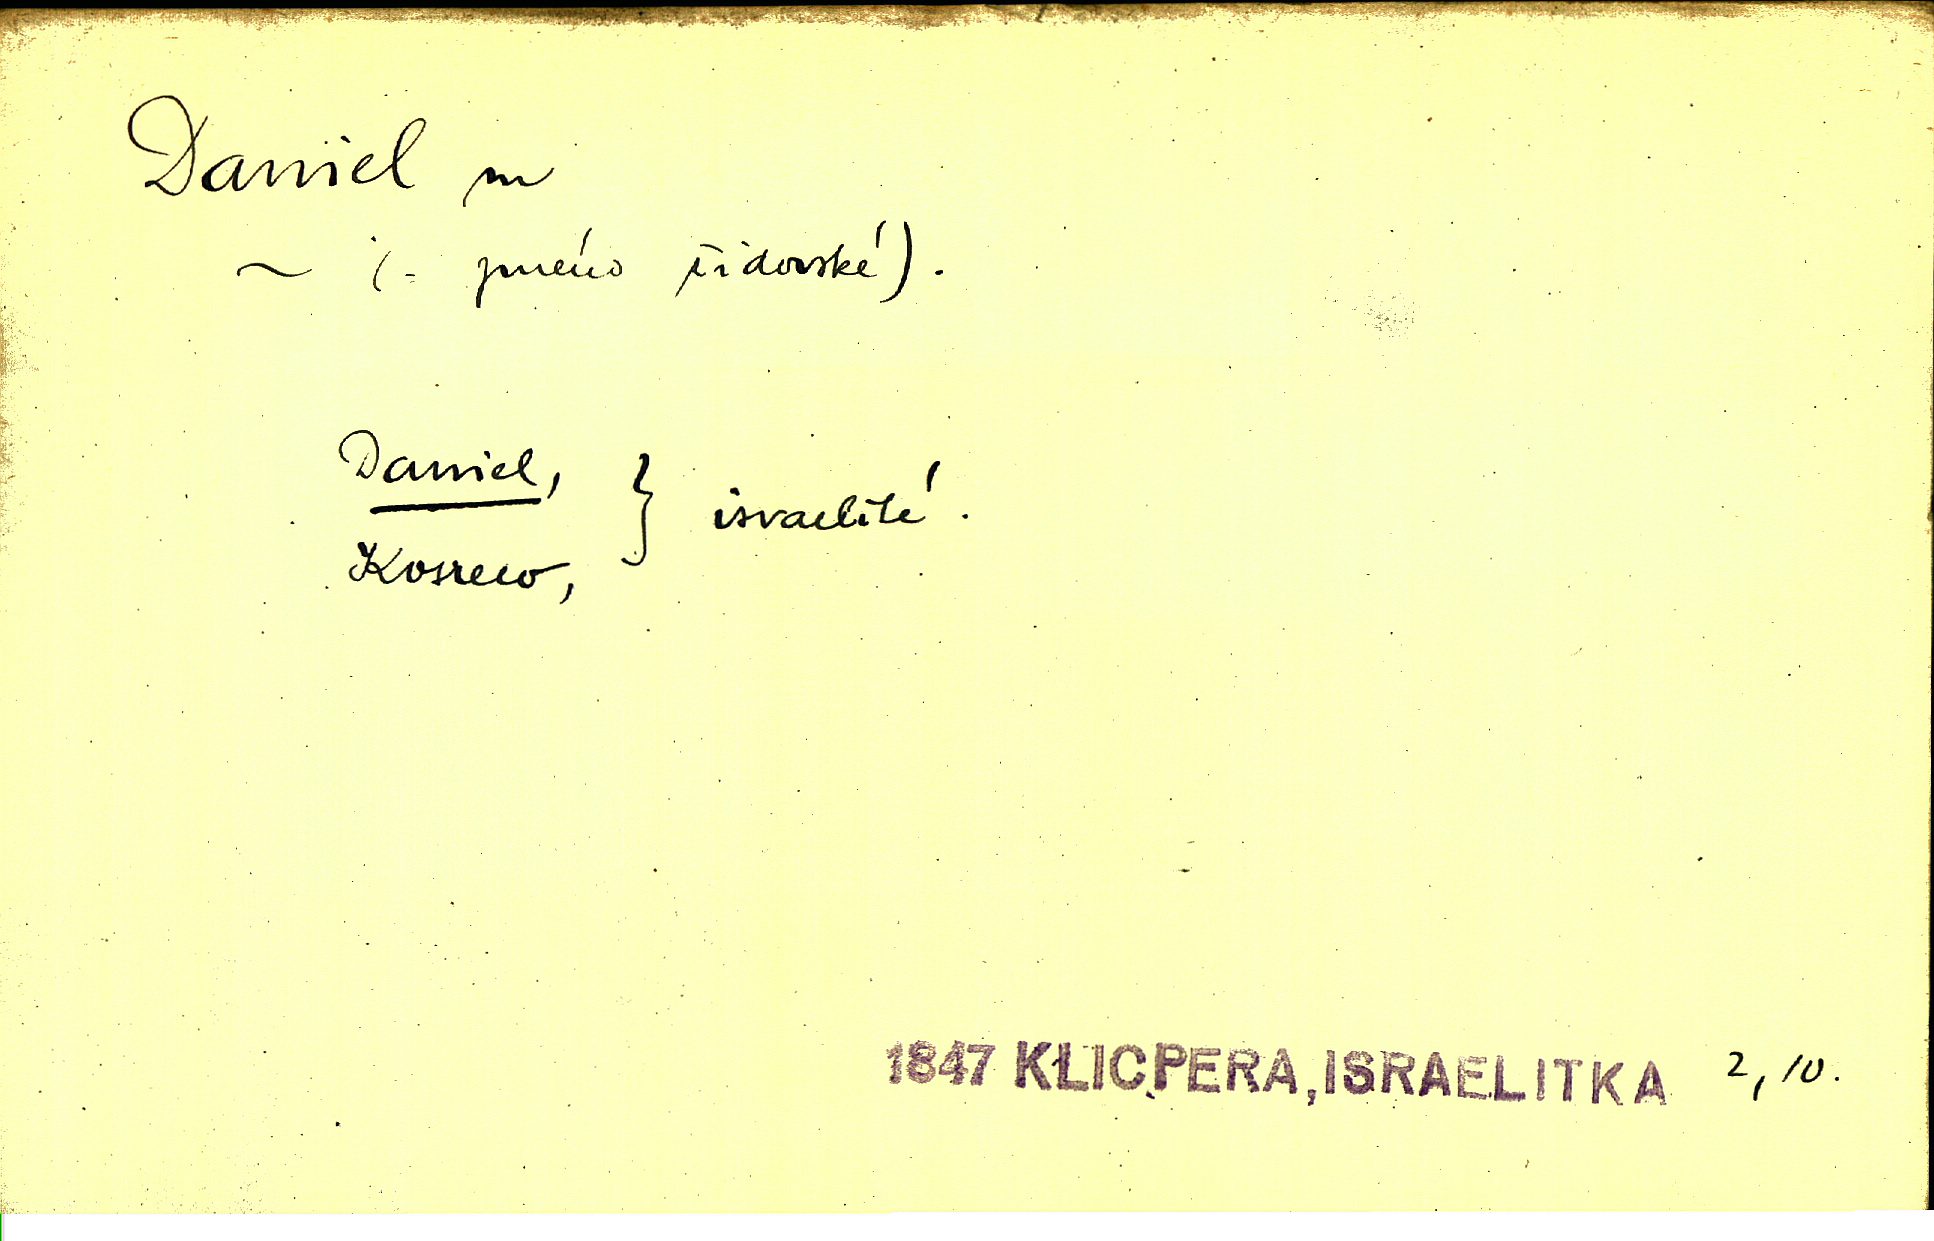 Daniel m
~ (= jméno židovské).
Daniel, } israelité.
Kosreo,
1847 KLICPERA, ISRAELITKA 2, 10.